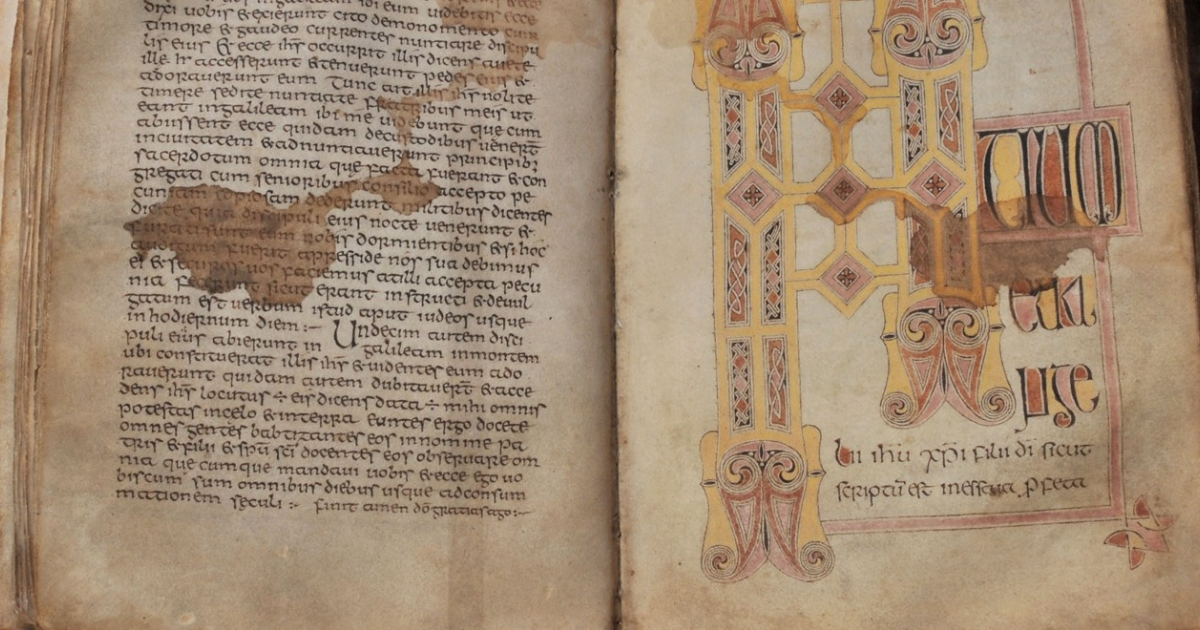 dixi uobis & exierunt cito demonomento cum
timore & gaudeo currentes nuntiare discipu
lis eius & ecce ihs occurrit illis dicens auete
ille h accesserunt & tenuerunt pedes eius &
adorauerunt eum Tunc ait illis ihs nolite
timere sed ite nuntiate fratribus meis ut
eant ingalileam ibi me uidebunt que cum
abiissent ecce quidam decustodibus uenert
inciuitatem & adnuntiauerunt principibs
sacerdotum omnia que facta fuerant & con
gregati cum senioribus consilio accepto pe
cuniam copiosam dederunt militibus dicentes
dicite quia discipuli eius nocte uenerunt &
furati sunt eum nobis dormientibus & si hoc
auditum fuerit apresside nos sua debimus
ei & securos uos faciemus at illi accepta pecu
nia fecerunt sicut erant instructi & deuul
gatum est uerbum istud aput iudeos usque
in hodiernum diem :~ Undecim autem disci
puli eius abierunt in galileam inmontem
ubi constituerat illis ihs & uidentes eum ado
rauerunt quidam autem dubitauert & acce
dens ihs locutus ÷ eis dicens data ÷ mihi omnis
potestas incelo & interra euntes ergo docete
omnes gentes babtizantes eos innomine pa
tris & filii & spu sci docentes eos obseruare om
nia que cumque mandaui uobis & ecce ego uo
biscum sum omnibus diebus usque adconsum
mationem seculi :~ finit amen do gratias ago :~
TIUM
lii ihu xpi filii di sicut
scriptu est inessaia pfeta